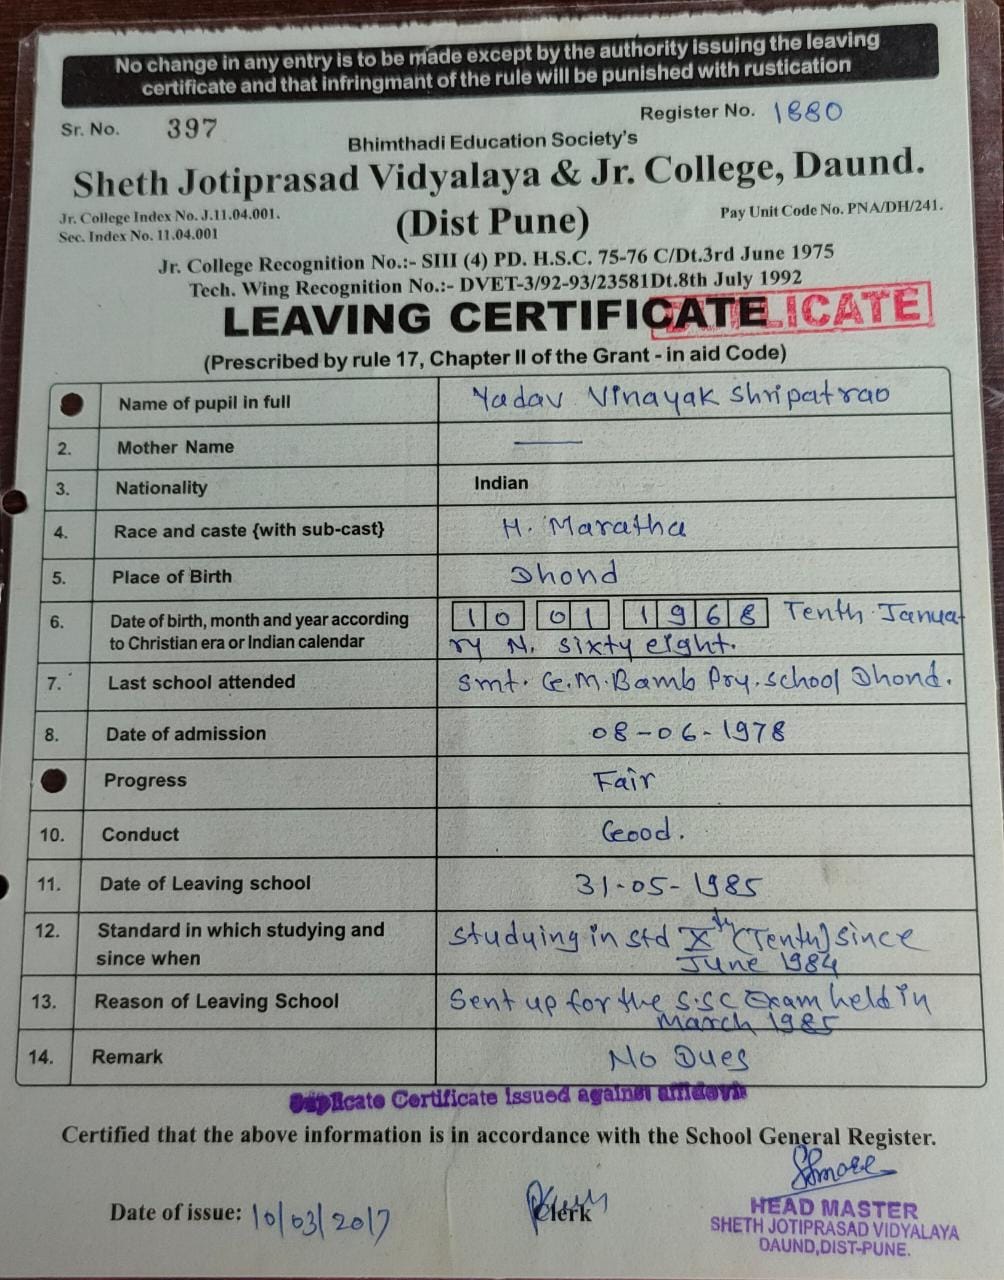 No change in any entry is to be made except by the authority issuing the leaving
certificate and that infringmant of the rule will be punished with rustication
Sr. No. 397
Register No. 1880
Bhimthadi Education Society's
Sheth Jotiprasad Vidyalaya & Jr. College, Daund.
Jr. College Index No. J.11.04.001.
Sec. Index No. 11.04.001
(Dist Pune)
Pay Unit Code No. PNA/DH/241.
Jr. College Recognition No.:- SIII (4) PD. H.S.C. 75-76 C/Dt.3rd June 1975
Tech. Wing Recognition No.:- DVET-3/92-93/23581Dt.8th July 1992
LEAVING CERTIFICATE DUPLICATE
(Prescribed by rule 17, Chapter II of the Grant - in aid Code)
Name of pupil in full Yadav Vinayak Shripatrao
2. Mother Name ———
3. Nationality Indian
4. Race and caste {with sub-cast} H. Maratha
5. Place of Birth Dhond
6. Date of birth, month and year according 10 01 1968 Tenth Janua-
to Christian era or Indian calendar ry N. sixty eight.
7. Last school attended Smt. G.M. Bamb Pry. school Dhond.
8. Date of admission 08-06-1978
Progress Fair
10. Conduct Good.
11. Date of Leaving school 31-05-1985
12. Standard in which studying and studying in std Xth (Tenth) since
since when June 1984
13. Reason of Leaving School Sent up for the S.SC Exam held in
March 1985
14. Remark No Dues
Duplicate Certificate issued against affidavit
Certified that the above information is in accordance with the School General Register.
Date of issue: 10/03/2017
Clerk
HEAD MASTER
SHETH JOTIPRASAD VIDYALAYA
DAUND,DIST-PUNE.